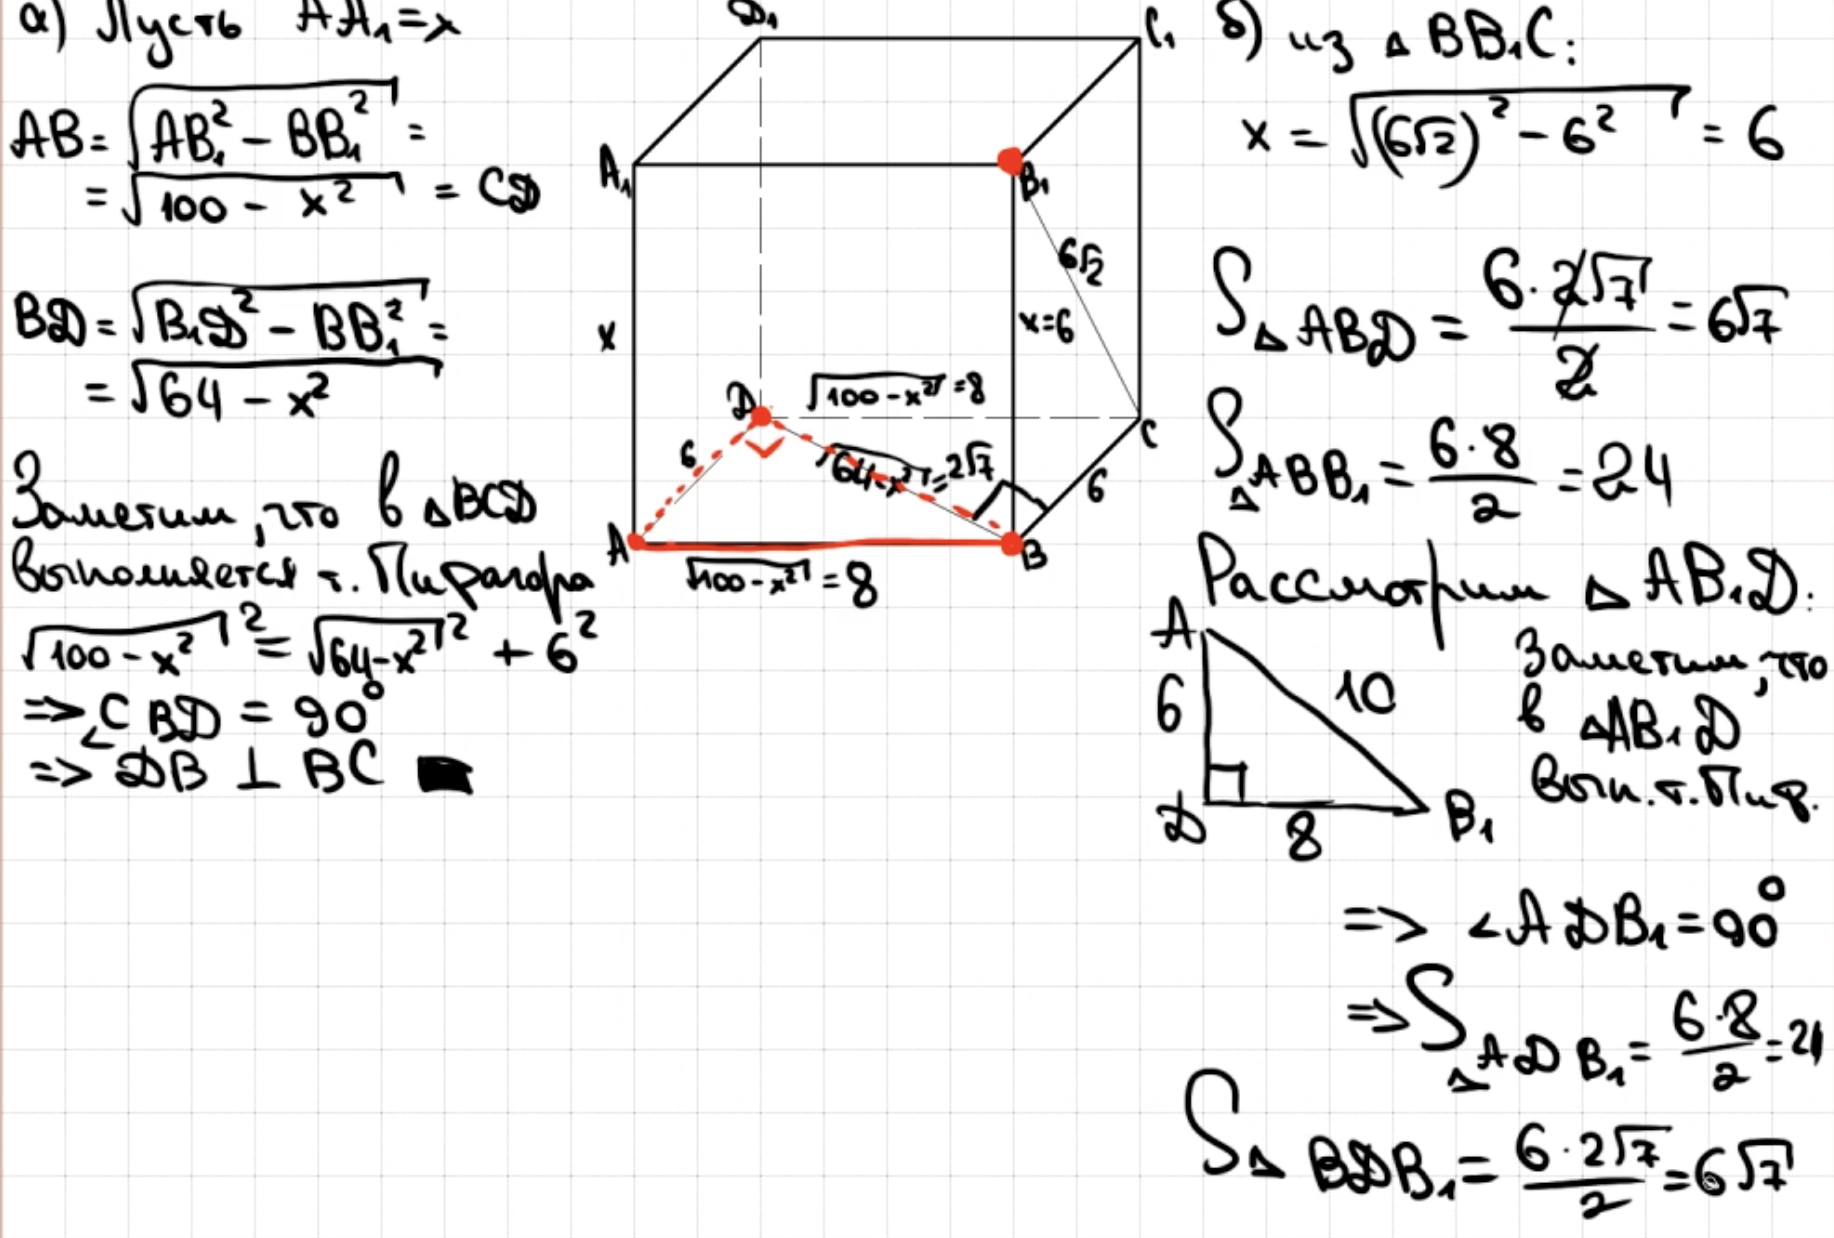 а) Пусть AA₁=x
AB = √(AB₁² - BB₁²) =
= √(100 - x²) = CD
BD = √(B₁D² - BB₁²) =
= √(64 - x²)
Заметим, что в △BCD
выполняется т. Пифагора
√(100-x²)² = √(64-x²)² + 6²
=> ∠CBD = 90°
=> DB ⊥ BC ■
D₁
C₁
A₁
B₁
6√2
x
x=6
D
√(100-x²) = 8
C
6
√(64-x²) = 2√7
6
A
B
√(100-x²) = 8
б) из △ BB₁C:
x = √((6√2)² - 6²) = 6
S△ABD = (6·2√7)/2 = 6√7
S△ABB₁ = (6·8)/2 = 24
Рассмотрим △ AB₁D:
A
6
10
D
8
B₁
Заметим, что
в △AB₁D
вып. т. Пиф.
=> ∠ADB₁ = 90°
=> S△ADB₁ = (6·8)/2 = 24
S△BDB₁ = (6·2√7)/2 = 6√7